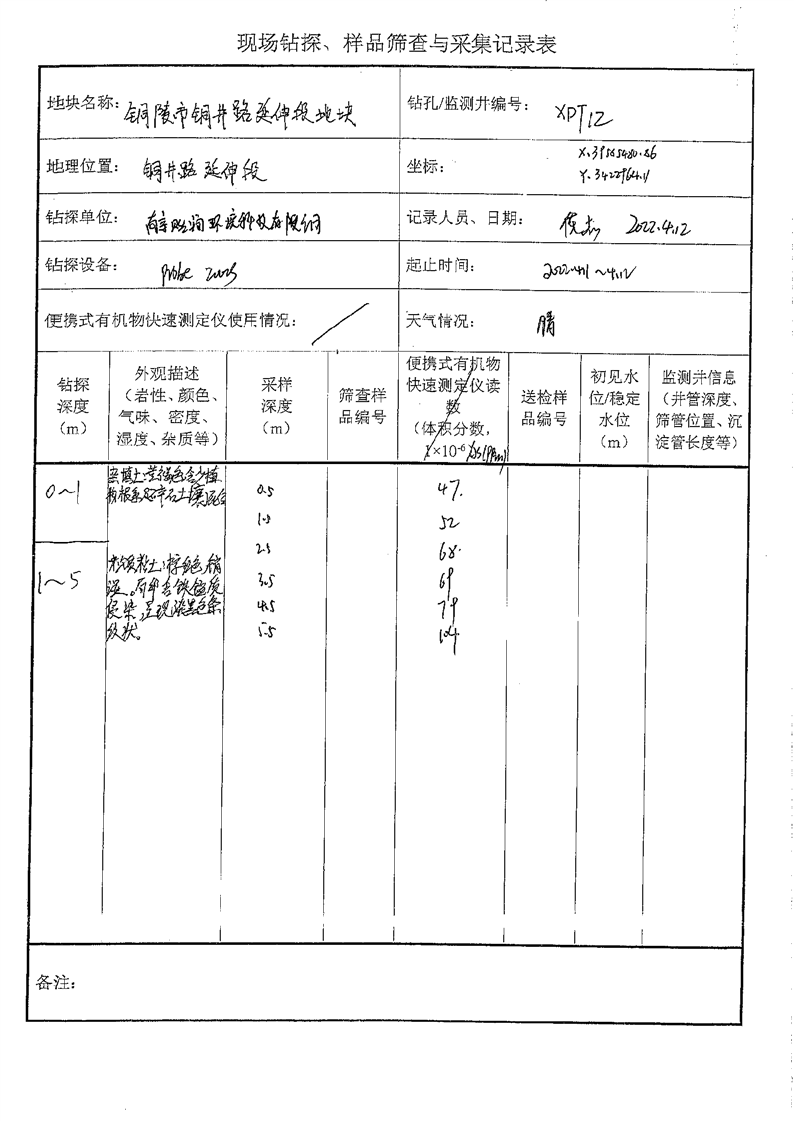 现场钻探、样品筛查与采集记录表
地块名称： 铜陵市铜井路延伸段地块
钻孔/监测井编号： XPT12
地理位置： 铜井路延伸段
坐标：
X.39565480.86
Y.3422964.11
钻探单位： 环境科技有限公司
记录人员、日期： 2022.4.12
钻探设备： probe
起止时间： ~4.12
便携式有机物快速测定仪使用情况： /
天气情况： 晴
钻探
深度
（m）
外观描述
（岩性、颜色、
气味、密度、
湿度、杂质等）
采样
深度
（m）
筛查样
品编号
便携式有机物
快速测定仪读
数
（体积分数，
1×10-6
送检样
品编号
初见水
位/稳定
水位
（m）
监测井信息
（井管深度、
筛管位置、沉
淀管长度等）
0~1
杂填土
0.5 47.
1.5 52
2.5 68.
1~5
粉质粘土：棕 色，稍
湿。 铁锰质
3.5 69
侵染，呈现 黑色条
4.5 79
纹状。
5.5 104
备注：